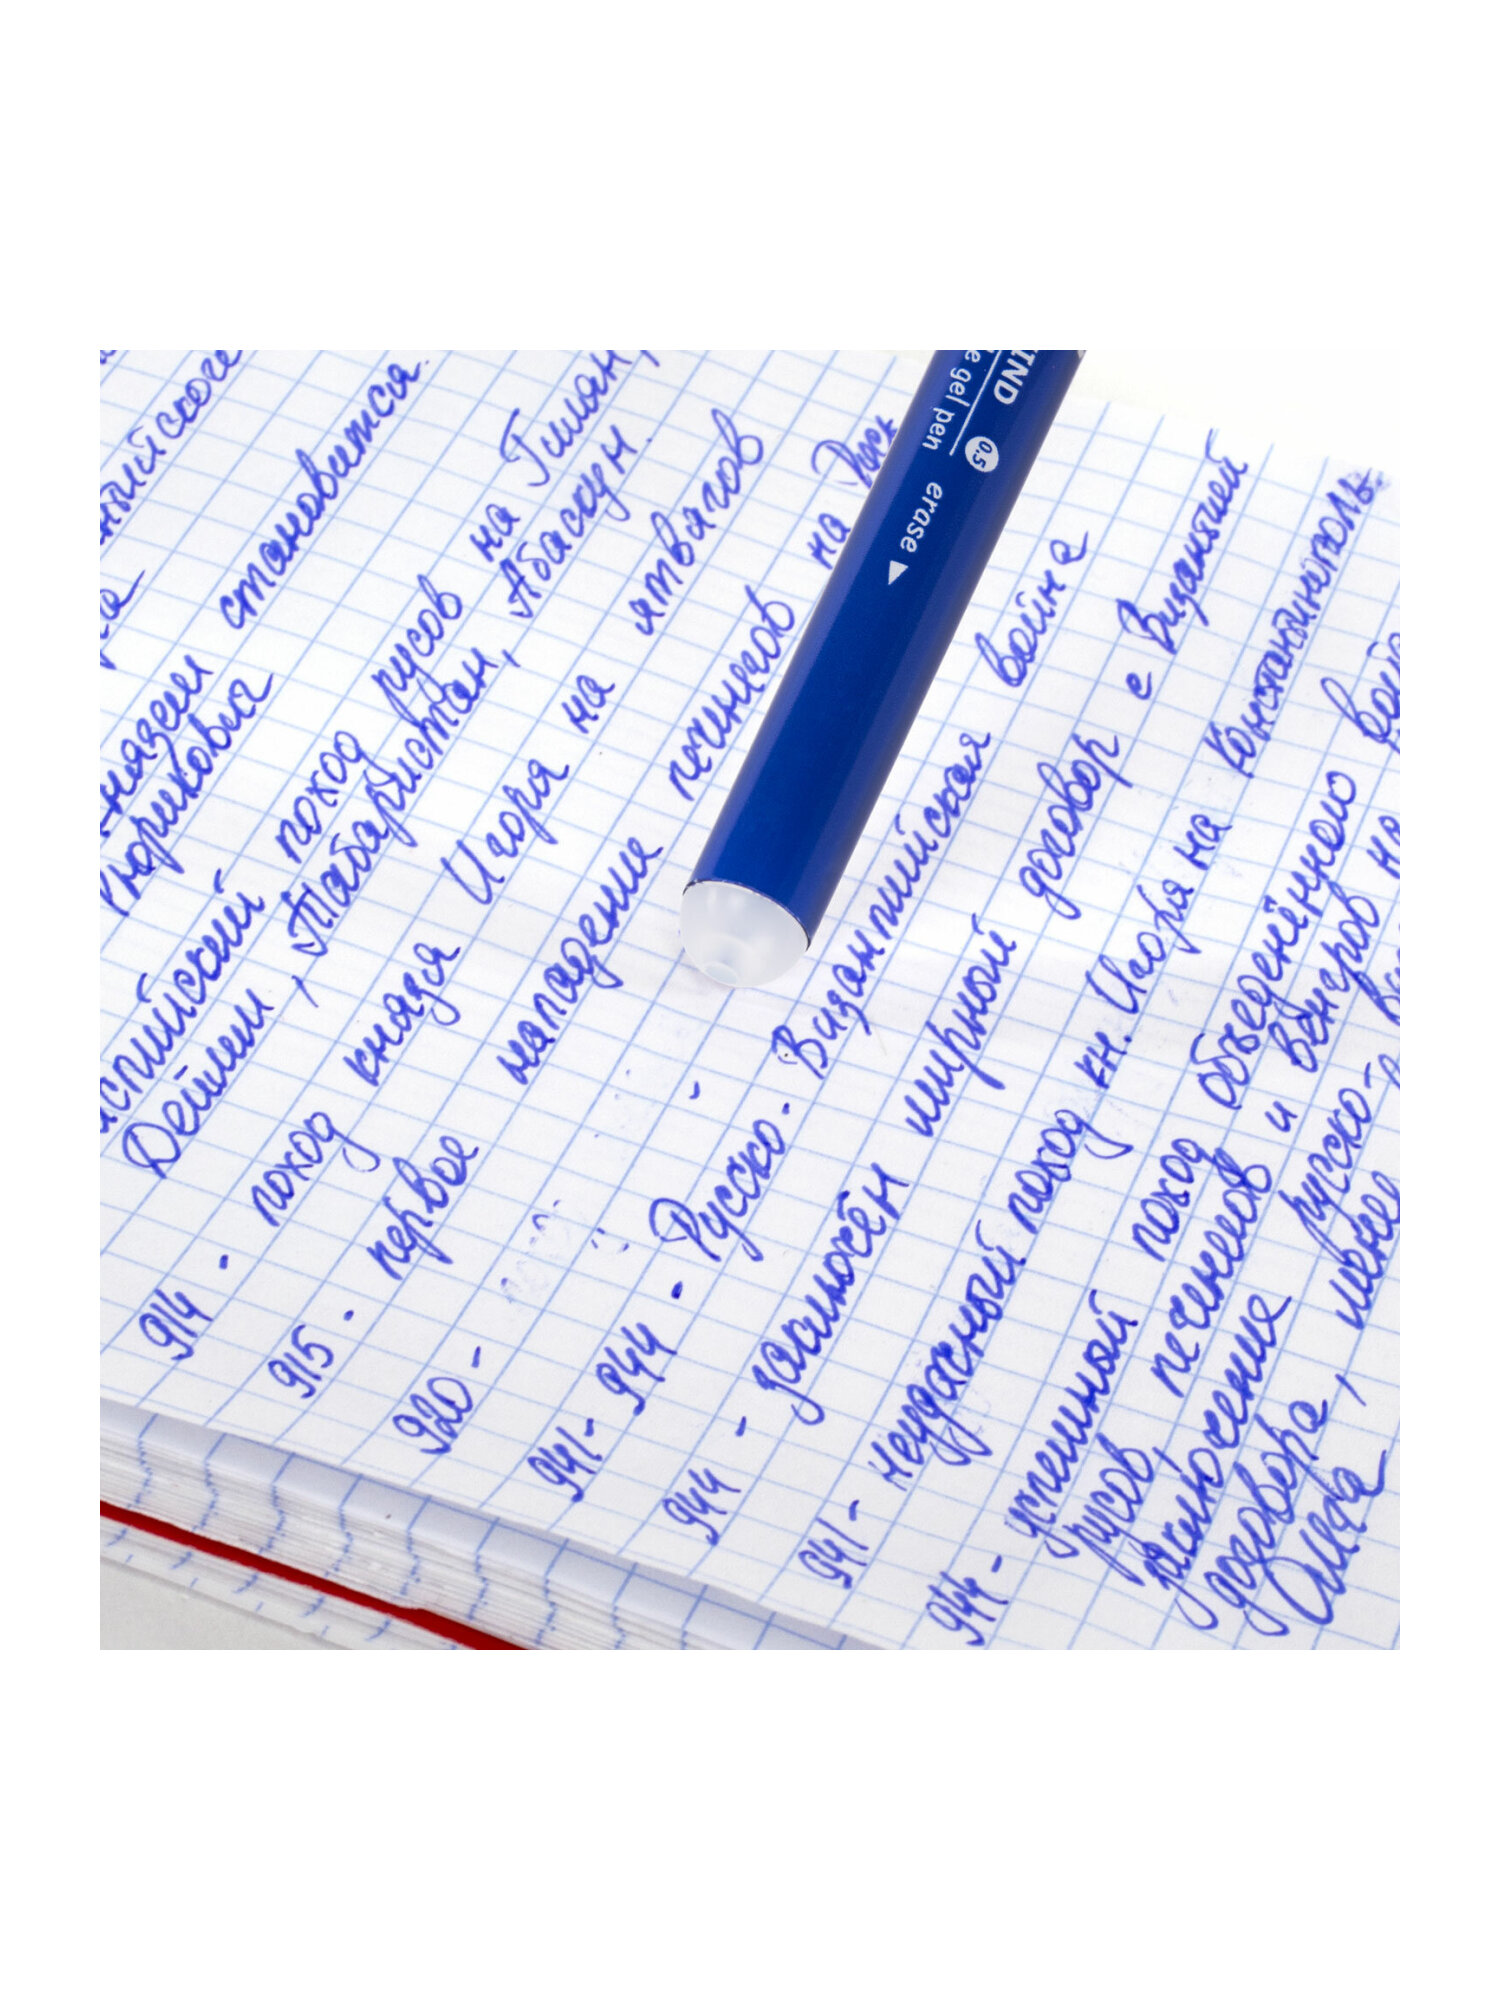 нязем становится.
Рюриковыч
спийский поход русов на Гилян,
Дейлем, Табаристан, Абаскун.
914 - поход князя Игоря на ятвягов
915 - первое нападение печенегов на Русь
920 -
941 - 944 - Русско-Византийская война
944 - заключён мирный договор с Византией
941 - неудасный поход кн. Игоря на Константинополь.
944 - успешный поход объеденённого вой
русов, печенегов и венгров на
заключение русско-в
договора, менее
Лида
IND
e gel pen 0,5
erase